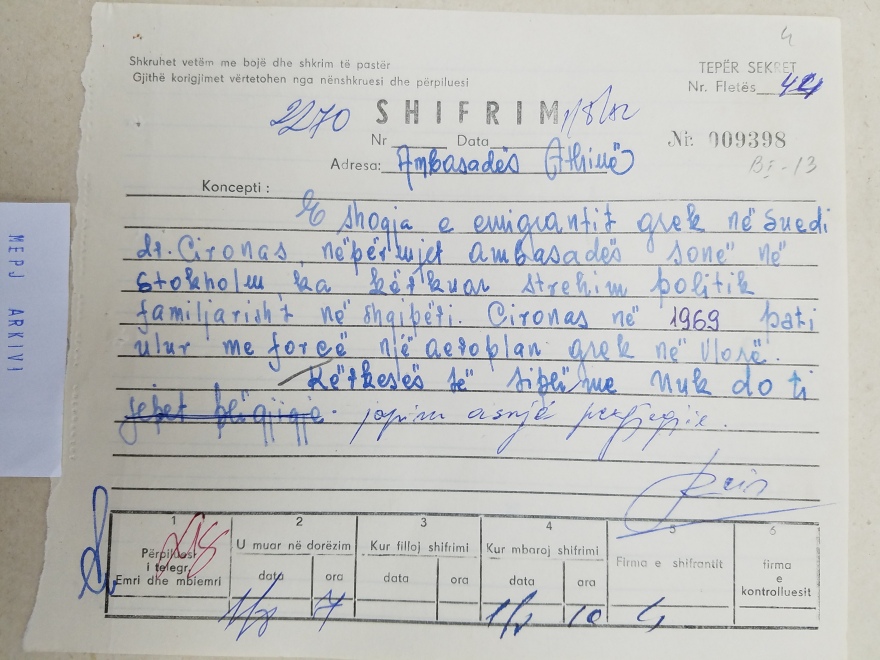 4
Shkruhet vetëm me bojë dhe shkrim të pastër
Gjithë korigjimet vërtetohen nga nënshkruesi dhe përpiluesi
TEPËR SEKRET
Nr. Fletës
2270 SHIFRIM 1/8/82
Nr Data
Nr. 009398
Adresa: Ambasadës Athinë
BI-13
Koncepti :
E shoqja e emigrantit grek në Suedi
dr. Cironas, nëpërmjet ambasadës sonë në
Stokholm ka kërkuar strehim politik
familjarisht në Shqipëri. Cironas në 1969 pati
ulur me forcë një aeroplan grek në Vlorë.
Kërkesës së sipërme nuk do ti
jepet përgjigje. japim asnjë përgjegje.
MEPJ ARKIVI
1
2
3
4
5
6
Përpiluesi
i telegr.
Emri dhe mbiemri
U muar në dorëzim
Kur filloj shifrimi
Kur mbaroj shifrimi
Firma e shifrantit
firma
e
kontrolluesit
data ora data ora data ora
1/8 7 1/8 10